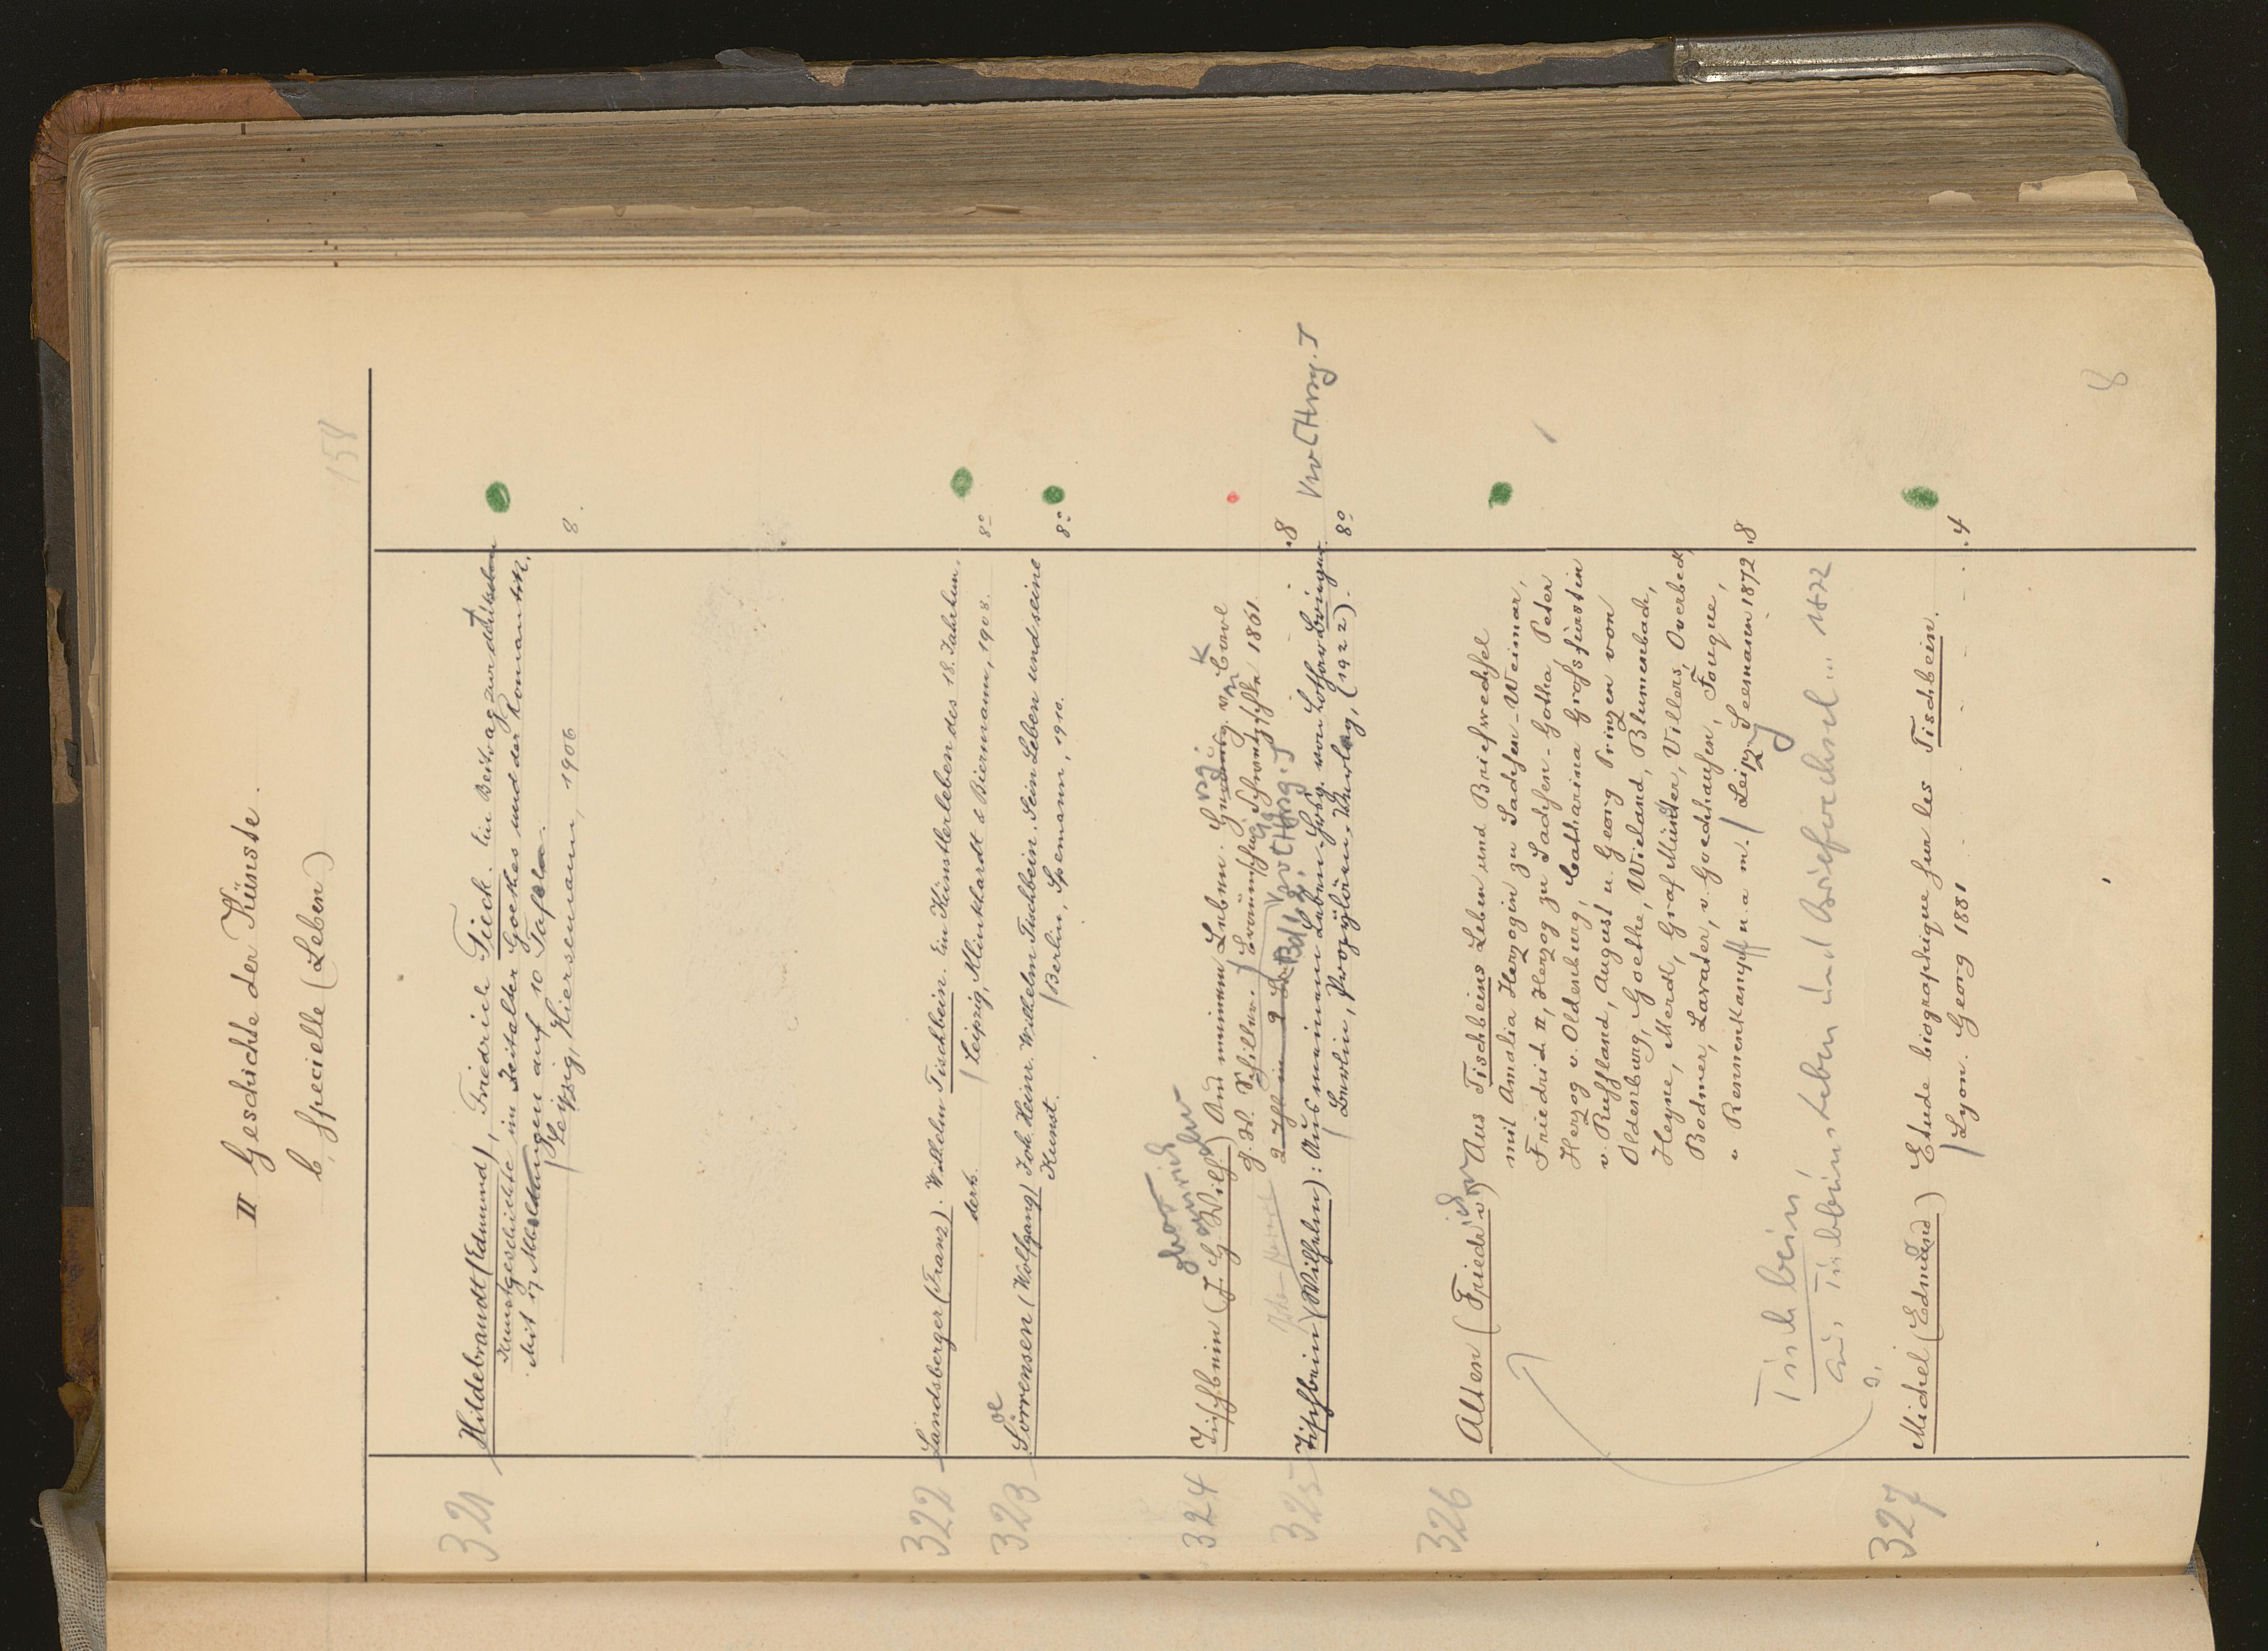 II Geschichte der Künste.
b, Specielle (Leben)
158
321 Hildebrandt (Edmund), Friedrich Tieck. Ein Beitrag zur deutschen
Kunstgeschichte im Zeitalter Goethes und der Romantik.
Mit 7 Abbildungen auf 10 Tafeln.
/ Leipzig, Hiersemann, 1906 8.
322 Landsberger (Franz). Wilhelm Tischbein. Ein Künstlerleben des 18. Jahrhun-
derts. / Leipzig, Klinkhardt & Biermann, 1908. 8°
323 Sörrensen (Wolfgang) Joh. Heinr. Wilhelm Tischbein. Sein Leben und seine
oe
Kunst. / Berlin, Spemann, 1910. 8°
324 Tischbein (J. H. Wilh.) Aus meinem Leben. Hrsg. v. Carl
K
G. W. Schiller. / Braunschweig, Schwetschke 1861.
2 Bde. 8
325 Tischbein (Wilhelm): Aus meinem Leben. Hrsg. von Lothar Brieger.
/ Berlin, Propyläen-Verlag, (1922). 8°
326 Alten (Friedrich v.) Aus Tischbeins Leben und Briefwechsel
mit Amalia Herzogin zu Sachsen-Weimar,
Friedrich II, Herzog zu Sachsen-Gotha, Peter
Herzog v. Oldenburg, Catharina Grossfürstin
v. Russland, August u. Georg Prinzen von
Oldenburg, Goethe, Wieland, Blumenbach,
Heyne, Merck, Graf Münster, Villers, Overbeck,
Bodmer, Lavater, v. Goechhausen, Fouque,
v Rennenkampff u. a m. / Leipz Seemann 1872 .8
Tischbein,
Aus Tischbeins Leben und Briefwechsel... 1872
s.
327 Michel (Edmond) Etude biographique sur les Tischbein.
/ Lyon. Georg 1881 .4
8